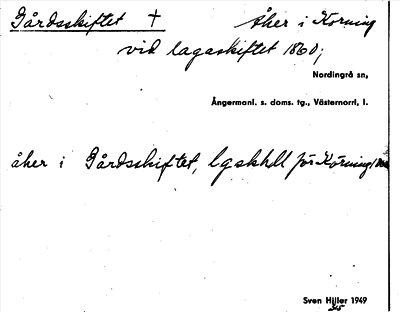 Gårdsskiftet † åker i Körning
vid lagaskiftet 1860;
Nordingrå sn,
Ångermanl. s. doms. tg., Västernorrl, l.
åker i Gårdsskiftet, lgskhll för Körning
Sven Hjller 1949